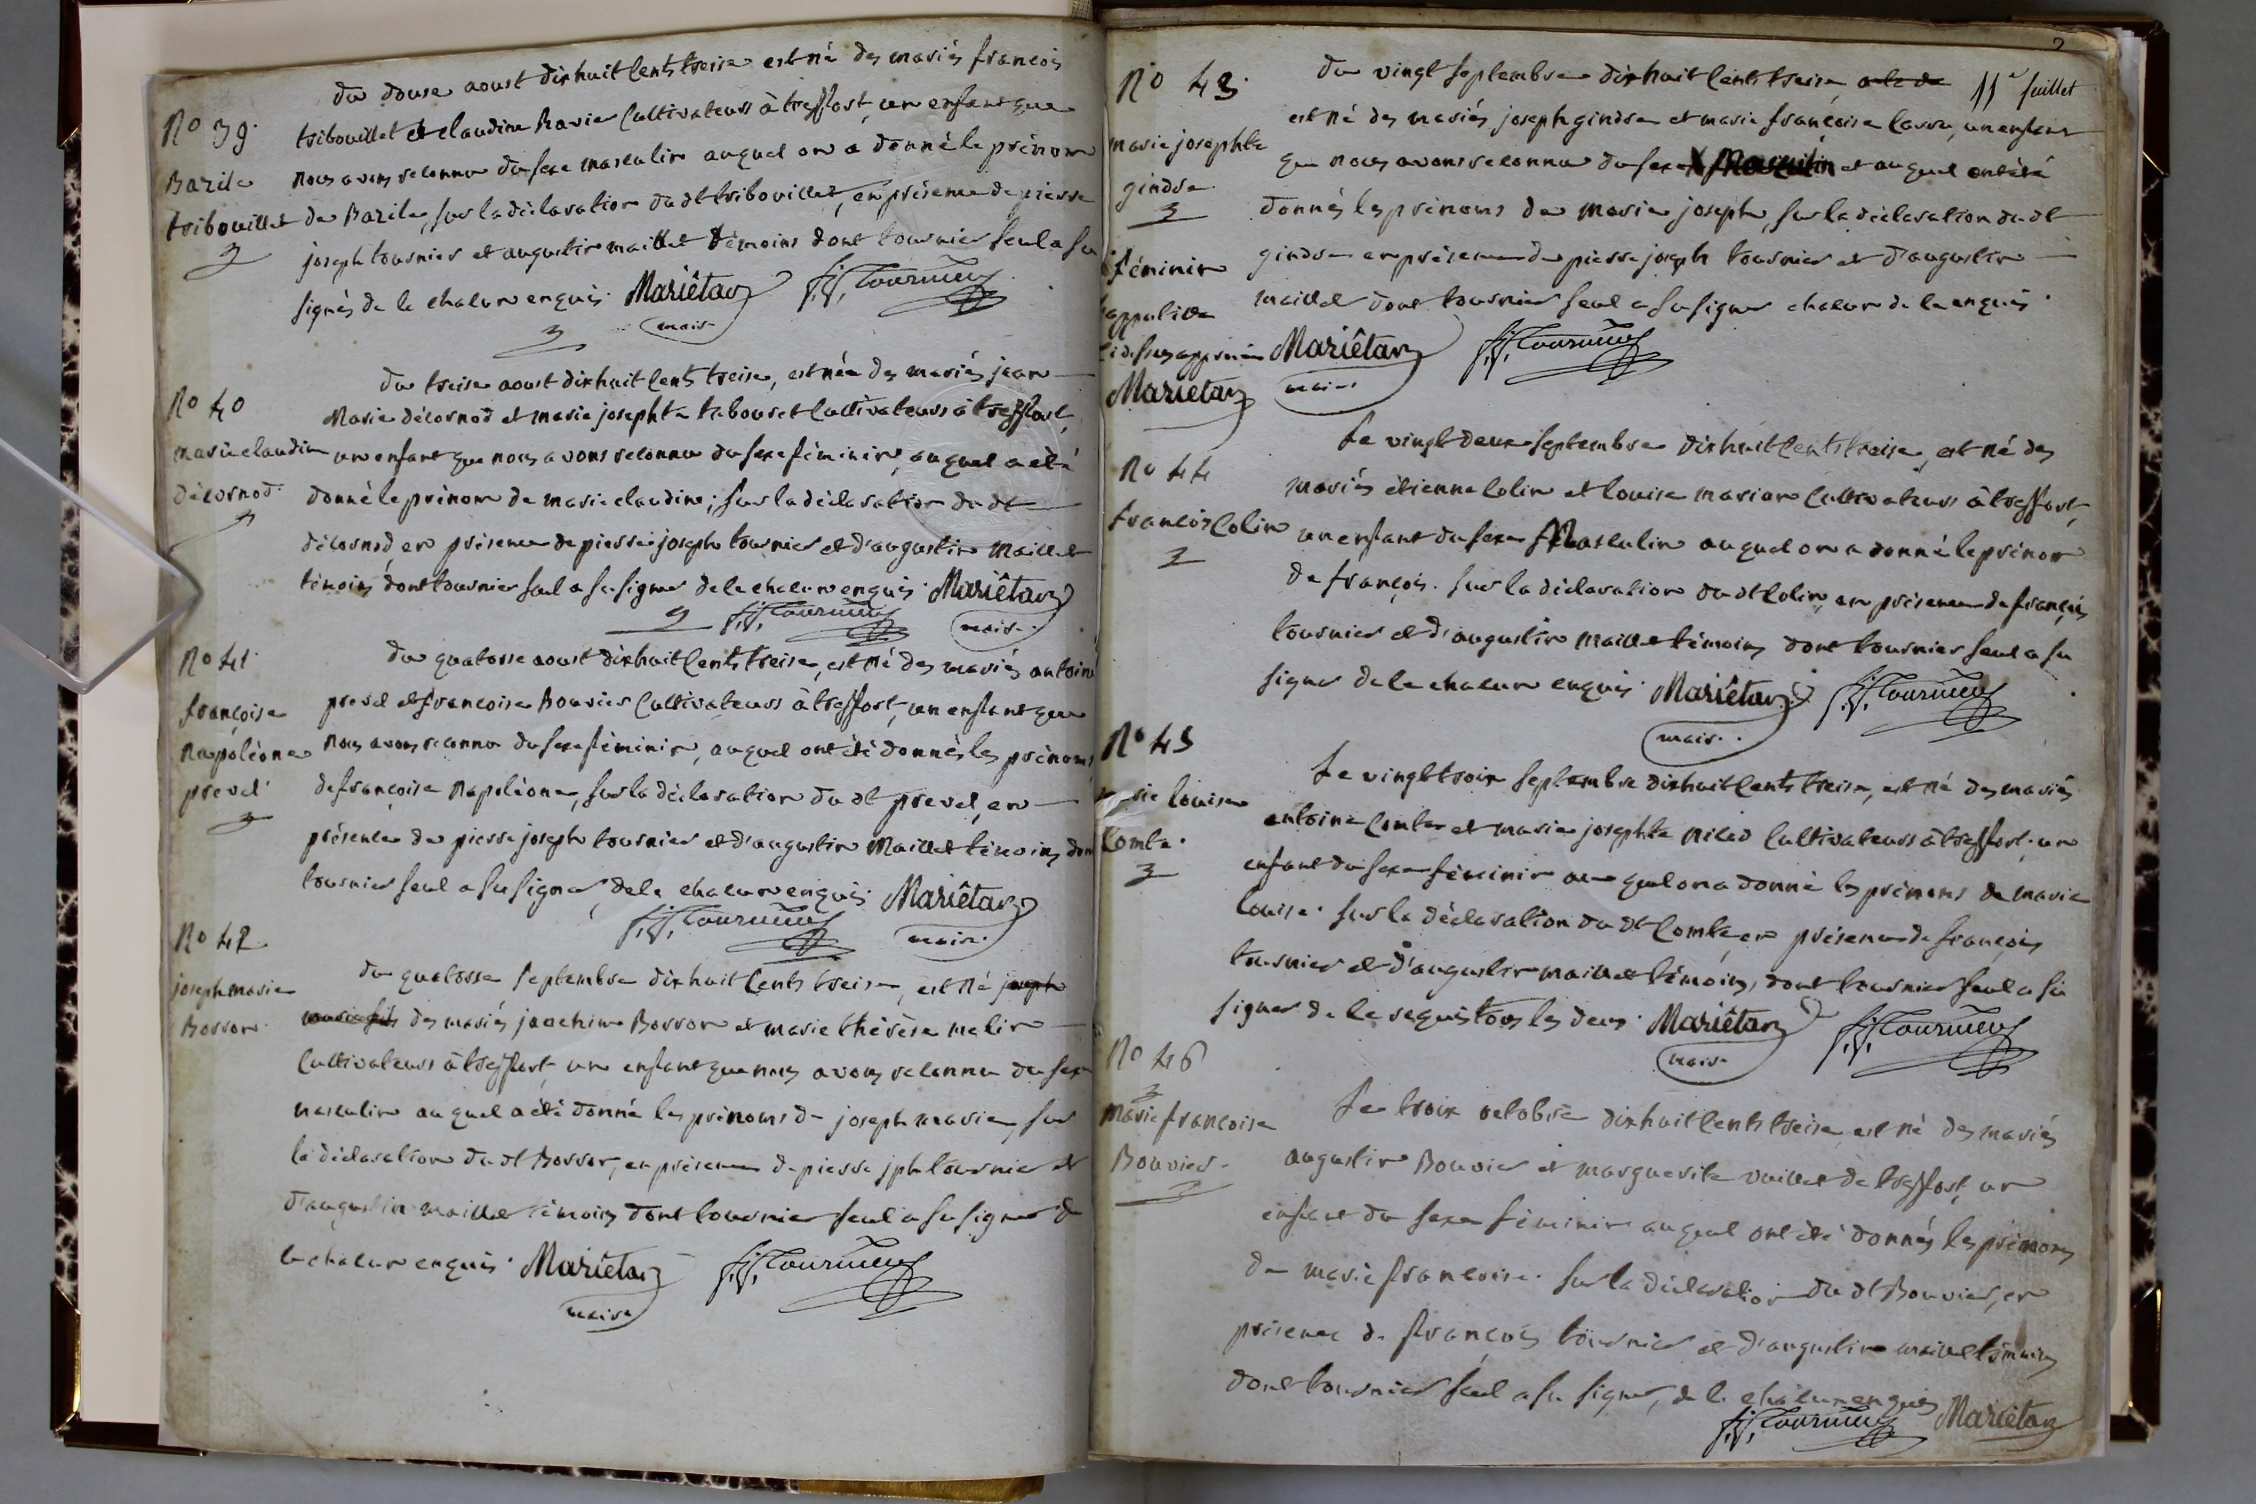 No 39.
Bazile
tribouillet
3
du douse aoust dixhuit Cents treise est né des mariés francois
tribouillet et claudine Ravie Cultivateurs à treffort, un enfant que
nous avons reconnu du sexe masculin auquel on a donné le prénom
de Bazile, sur la déclaration du dt tribouillet, en présence de pierre
joseph tournier et augustin maillet témoins dont tournier seul a su
signés de le chacun enquis. Mariêtan P. J. Tournier
3 maire
No 40
marie claudine
décornod.
du treise aoust dixhuit Cents treise, est née des mariés jean
Marie décornod et marie josephte tabouret Cultivateurs à treffort,
un enfant que nous avons reconnu du sexe féminin, auquel a été
donné le prénom de marie claudine; sur la déclaration du dt
décornod en présence de pierre joseph tournier et d'augustin Maillet
témoins dont tournier seul a su signer de le chacun enquis. Mariêtan
P. J. Tournier maire.
No 41.
françoise
Napoléone
prevel.
3
du quatorse aoust dixhuit Cents treise, est né des mariés antoine
prevel et francoise Bouvier Cultivateurs à treffort, un enfant que
nous avons reconnu du sexe féminin, auquel ont été donnés les prénoms
de françoise Napoléone, sur la déclaration du dt prevel, en
présence de pierre joseph tournier et d'augustin Maillet témoins dont
tournier seul a su signer, de le chacun enquis. Mariêtan
P. J. Tournier maire.
No 42
joseph marie
Borron.
du quatorse septembre dixhuit Cents treise, est né joseph
marie fils des mariés joachim Borron et marie thérèse melin
Cultivateurs à treffort, un enfant que nous avons reconnu du sexe
masculin auquel a été donné les prénoms de joseph marie, sur
la déclaration du dt Borron, en présence de pierre jph tournier et
d'augustin maillet témoins dont tournier seul a su signer de
le chacun enquis. Mariêtan P. J. Tournier
maire
2
11e feuillet
No 43.
marie josephte
gindre
3
féminin
ci dessus approuvé
Mariêtan
du vingt septembre dixhuit Cents treise,
est né des mariés joseph gindre et marie françoise un enfant
que nous avons reconnu du sexe X Masculin et auquel ont été
donnés les prénoms de marie joseph, sur la déclaration du dt
gindre en présence de pierre joseph tournier et d'augustin
maillet dont tournier seul a su signer chacun de le enquis.
Mariêtan P. J. Tournier
maire
No 44
francois Colin
3
Le vingt deux septembre dixhuit Cents treise, est né des
mariés étienne Colin et Louise marion Cultivateurs à treffort,
un enfant du sexe Masculin auquel on a donné le prénom
de françois. sur la déclaration du dt Colin, en présence de françois
tournier et d'augustin Maillet témoins dont tournier seul a su
signer de le chacun enquis. Mariêtan P. J. Tournier
maire.
No 45
marie louise
Comte.
3
Le vingt trois septembre dixhuit Cents treise, est né des mariés
antoine Comte et marie josephte Cultivateurs à treffort. un
enfant du sexe féminin auquel on a donné les prénoms de marie
Louise. sur la déclaration du dt Comte en présence de françois
tournier et d'augustin maillet témoins, dont tournier seul a su
signer de le requis tous les deux. Mariêtan P. J. Tournier
maire
No 46
3
Marie francoise
Bouvier.
Le trois octobre dixhuit Cents treise est né des mariés
augustin Bouvier et marguerite vuillet de treffort, un
enfant du sexe féminin auquel ont été donnés les prénoms
de marie francoise. sur la déclaration du dt Bouvier, en
présence de françois tournier et d'augustin maillet témoins
dont tournier seul a su signer, de le chacun enquis
P. J. Tournier Mariêtan